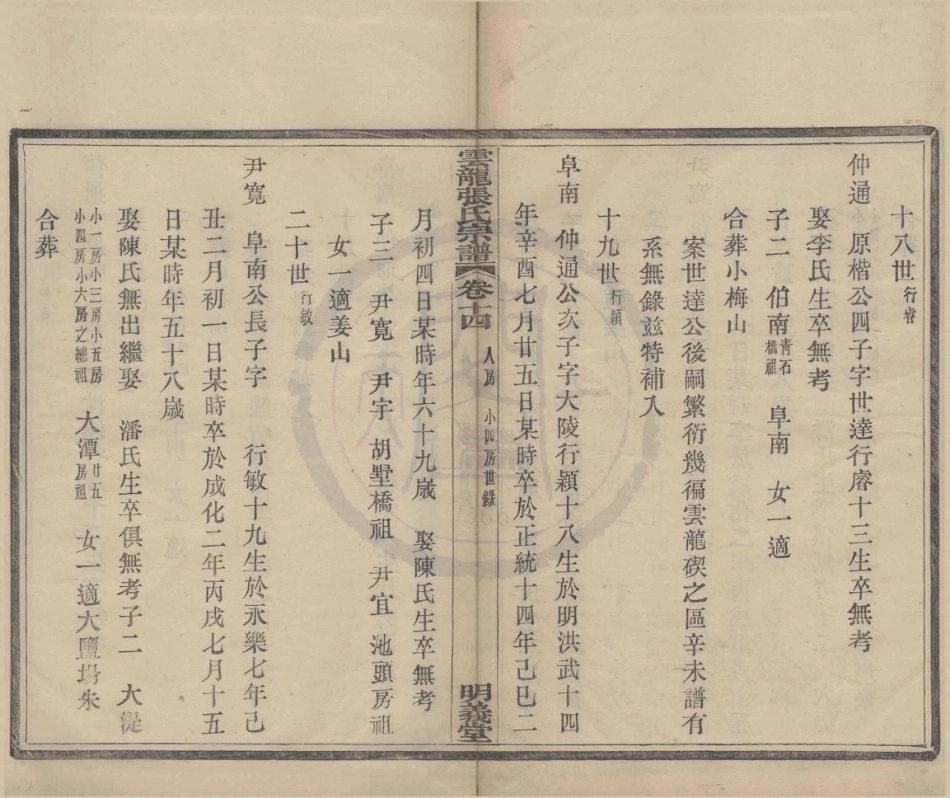 十八世行睿
仲通　原楷公四子字世達行睿十三生卒無考
娶李氏生卒無考
子二　伯南青石橋祖　阜南　女一適
合葬小梅山
案世達公後嗣繁衍幾徧雲龍碶之區辛未譜有
系無錄茲特補入
十九世行穎
阜南　仲通公次子字大陵行穎十八生於明洪武十四
年辛酉七月廿五日某時卒於正統十四年己巳二
雲龍張氏宗譜　卷十四　人房　小四房世錄　明義堂
月初四日某時年六十九歲　娶陳氏生卒無考
子三　尹寬　尹宇胡墅橋祖　尹宜池頭房祖
女一適姜山
二十世行敏
尹寬　阜南公長子字　行敏十九生於永樂七年己
丑二月初一日某時卒於成化二年丙戌七月十五
日某時年五十八歲
娶陳氏無出繼娶　潘氏生卒俱無考子二　大湜
小一房小三房小五房小四房小六房之總祖　大潭廿五房祖　女一適大鹽場朱
合葬